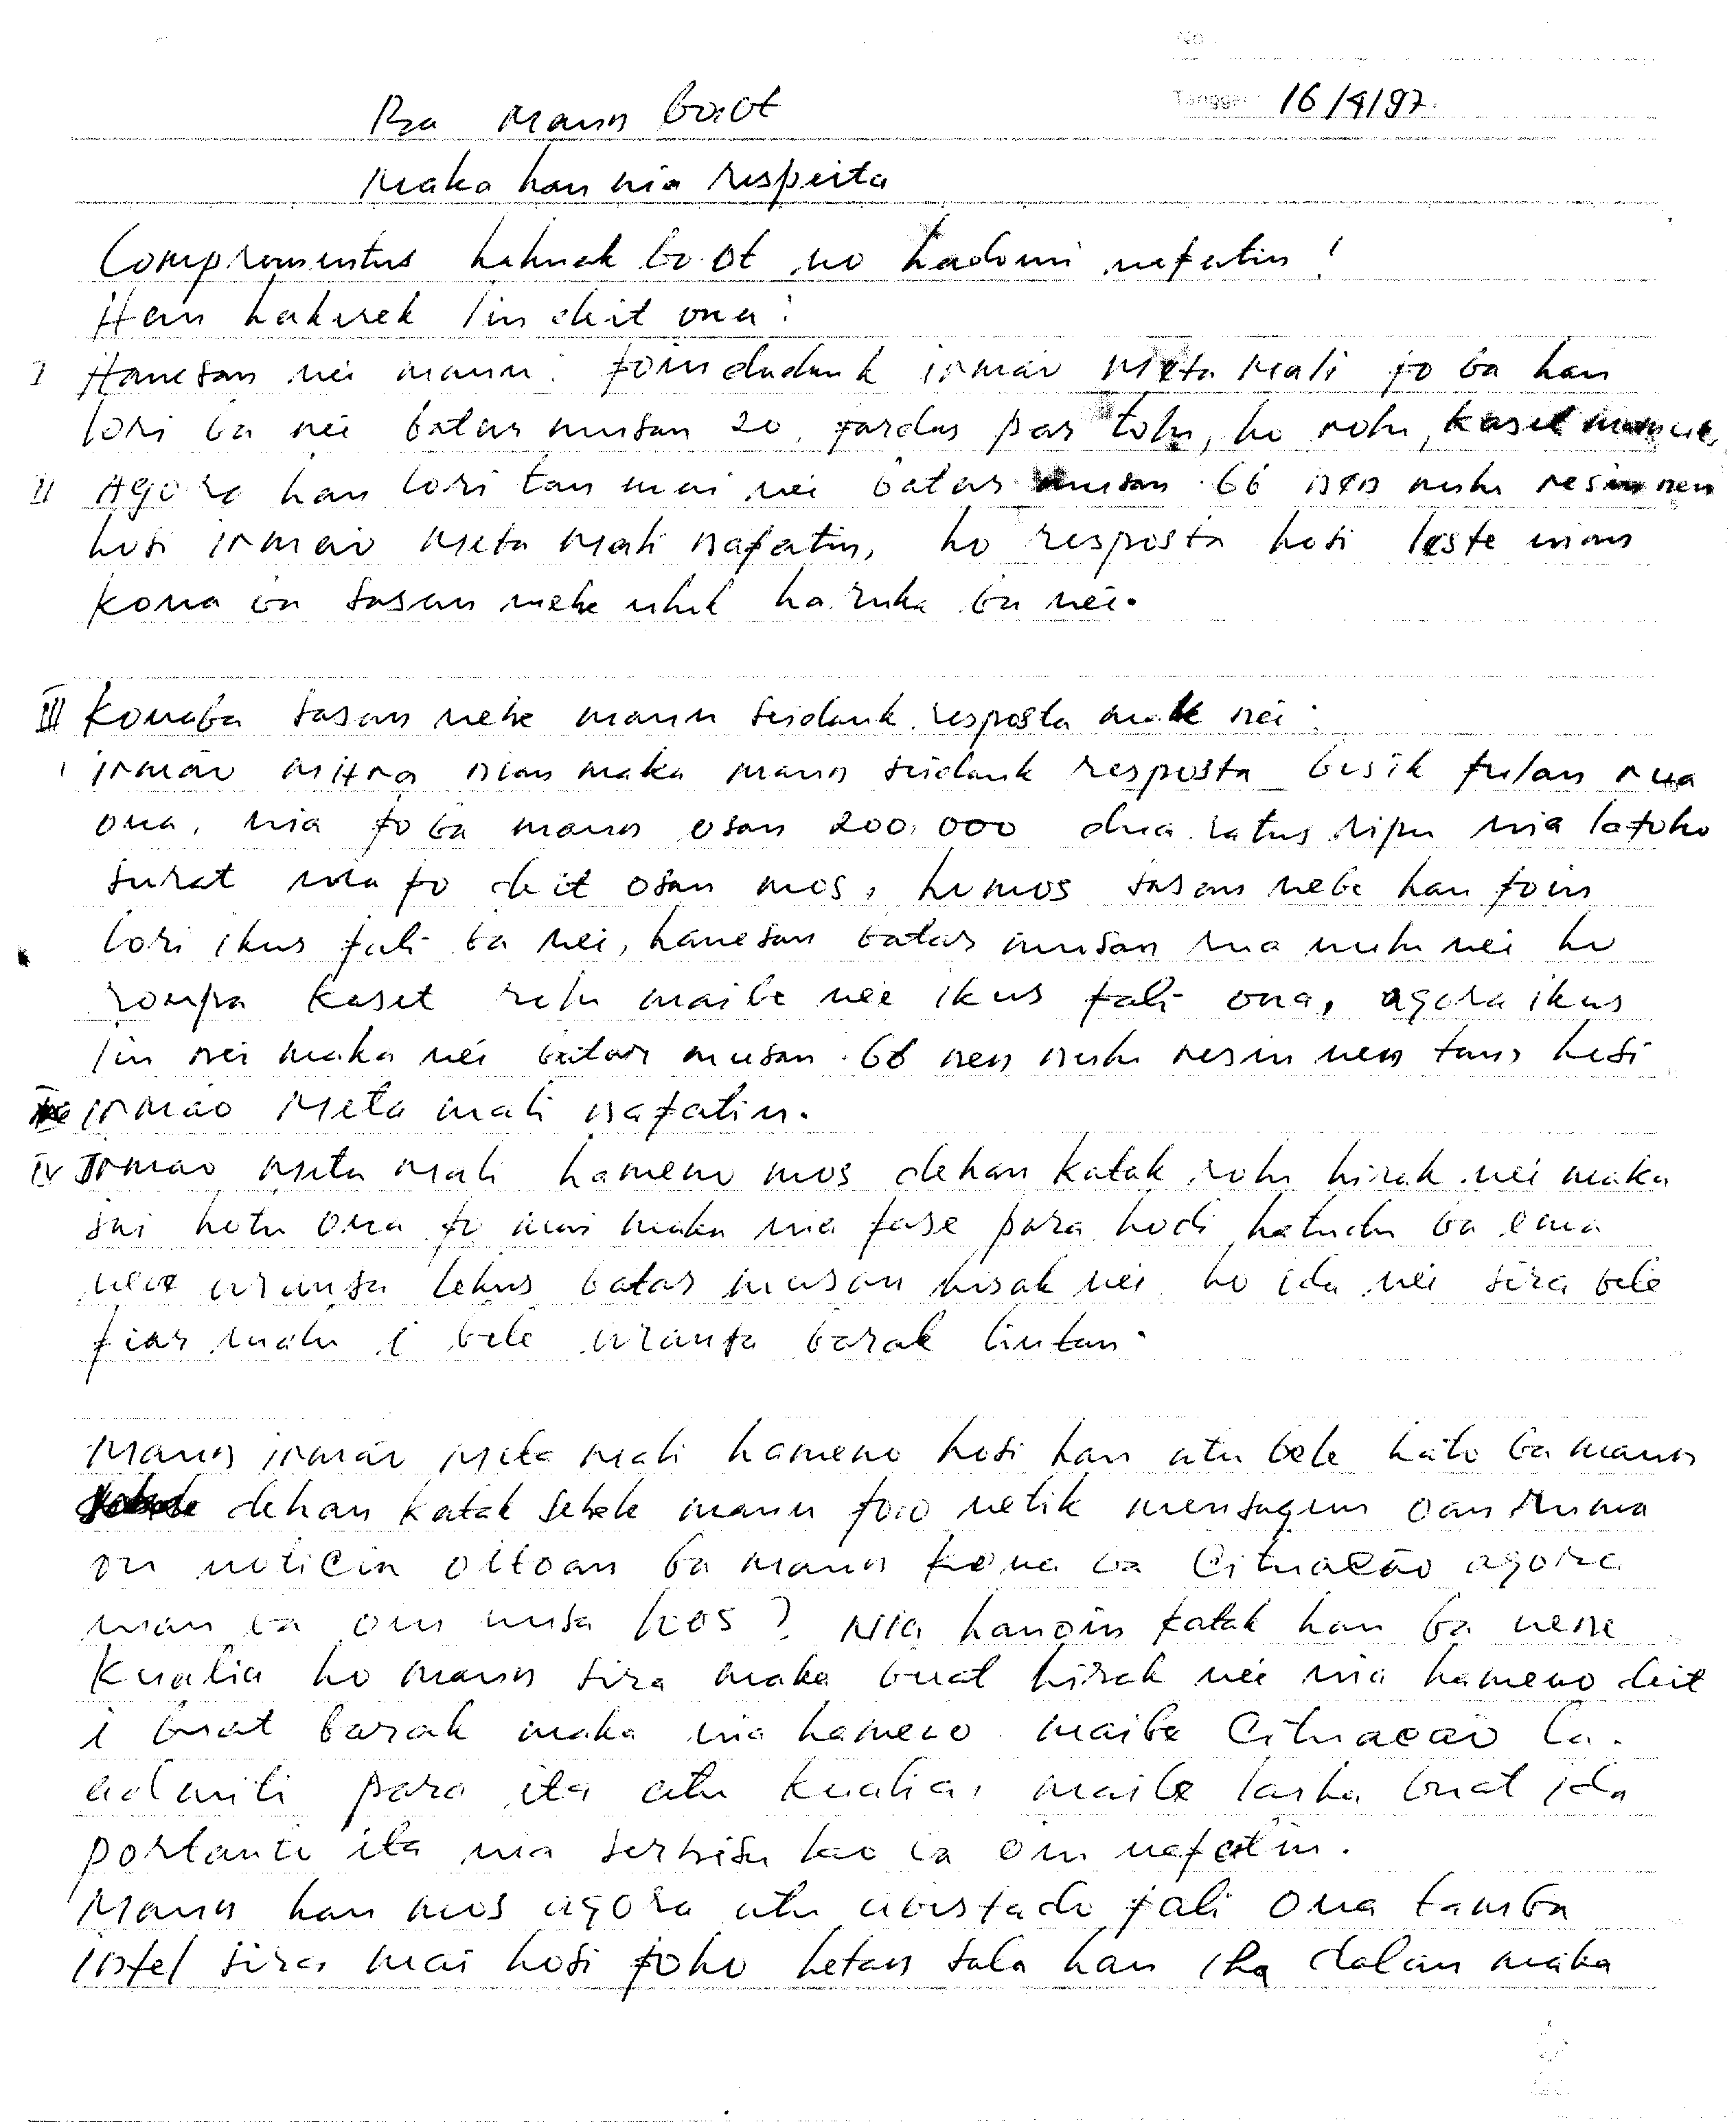 No.
Tanggal: 16/4/97.
Ba Maun Boot
Maka hau nia respeita
Comprementus hakuak bo.ot no hadomi nafatin!
Hau hakerek lin deit ona:
I Hanesan nei maun. foin dadauk irmão Meta Mali fo ba hau
lori ba nei batar musan 20, fardas par tolu, ho rolu, kaset
II Agora hau lori tan mai nei batar musan 66 nen nulu resin nen
hosi irmão Meta Mali nafatin, ho resposta hosi leste nian
kona ba sasan nebe uluk haruka ba nei.
III Konaba sasan nebe maun seidauk resposta mak nei:
irmão Mitra nian maka maun seidauk resposta besik fulan rua
ona, nia fo ba maun osan 200.000 dua ratus ripu nia la foho
surat nia fo deit osan mos, ho mos sasan nebe hau foin
lori ikus fali ba nei, hanesan batar musan rua nulu nei ho
roupa kaset rolu maibe nee ikus fali ona, agora ikus
lin nei maka nei batar musan 66 nen nulu resin nen tan hosi
irmão Meta mali nafatin.
IV Irmão Meta Mali hameno mos dehan katak rolu hirak nei maka
sai hotu ona fo mai maka nia fase para hodi hatudu ba ema
nebe uransa lekus batar musan hirak nei ho ida nei sira bele
fiar malu i bele uransa barak lintan.
Maun irmão Meta Mali hameno hosi hau atu bele hato ba maun
dehan katak sebele maun foo netik mensagem oan ruma
ou noticia oitoan ba maun kona ba Cituacão agora
nian ba oin nusa los? Nia hanoin katak hau ba nene
Kualia ho maun sira maka buat hirak nei nia hameno deit
i buat barak maka nia hameno maibe Cituacão la.
admiti para ita atu kualia, maibe laiha buat ida
portanto ita nia serbisu lao ba oin nafatin.
Maun hau mos agora atu afastado fali ona tamba
intel sira mai hosi foho hetan sala hau iha dalan maka